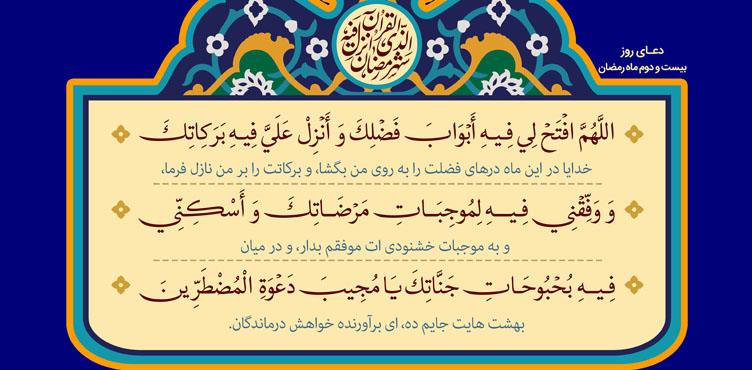 شهر رمضان الذی انزل فیه القرآن
دعـای روز
بیست و دوم ماه رمضان
اللَّهُمَّ افْتَحْ لِي فِـيـهِ أَبْوَابَ فَضْلِكَ وَ أَنْزِلْ عَلَيَّ فِيهِ بَرَكَاتِكَ
خدایا در این ماه درهای فضلت را به روی من بگشا، و برکاتت را بر من نازل فرما،
وَ وَفِّقْنِي فِـيـهِ لِمُوجِبَاتِ مَرْضَاتِكَ وَ أَسْكِنِّي
و به موجبات خشنودی ات موفقم بدار، و در میان
فِـيـهِ بُحْبُوحَاتِ جَنَّاتِكَ يَا مُجِيبَ دَعْوَةِ الْمُضْطَرِّينَ
بهشت هایت جایم ده، ای برآورنده خواهش درماندگان.